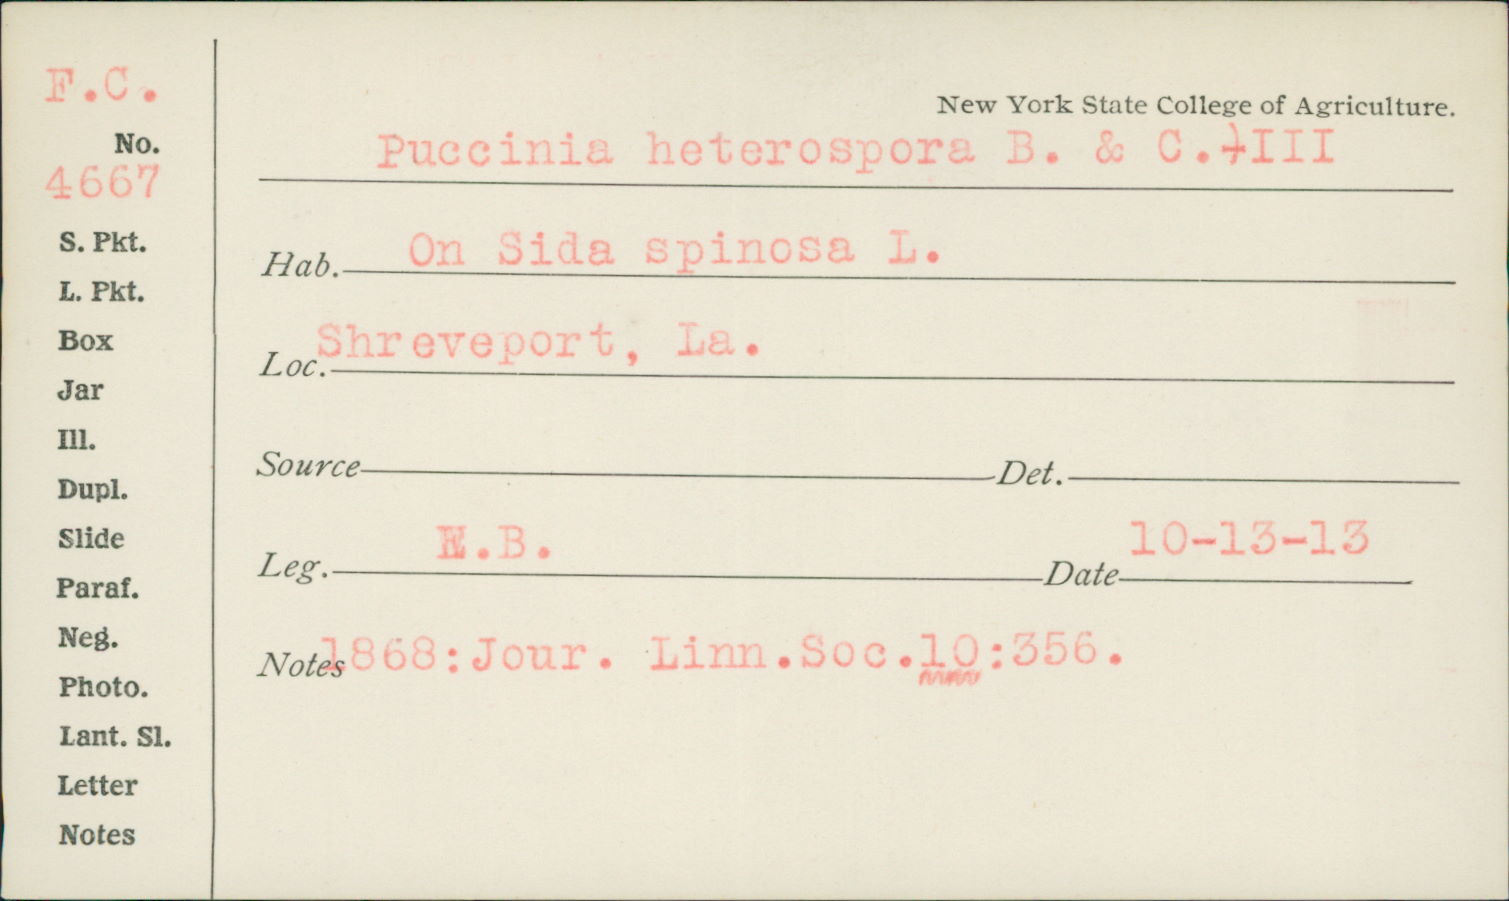 F.C.
No.
4667
S. Pkt.
L. Pkt.
Box
Jar
Ill.
Dupl.
Slide
Paraf.
Neg.
Photo.
Lant. Sl.
Letter
Notes
New York State College of Agriculture.
Puccinia heterospora B. & C. III
Hab. On Sida spinosa L.
Loc. Shreveport, La.
Source Det.
Leg. .B. Date 10-13-13
Notes 1868:Jour. Linn.Soc.10:356.